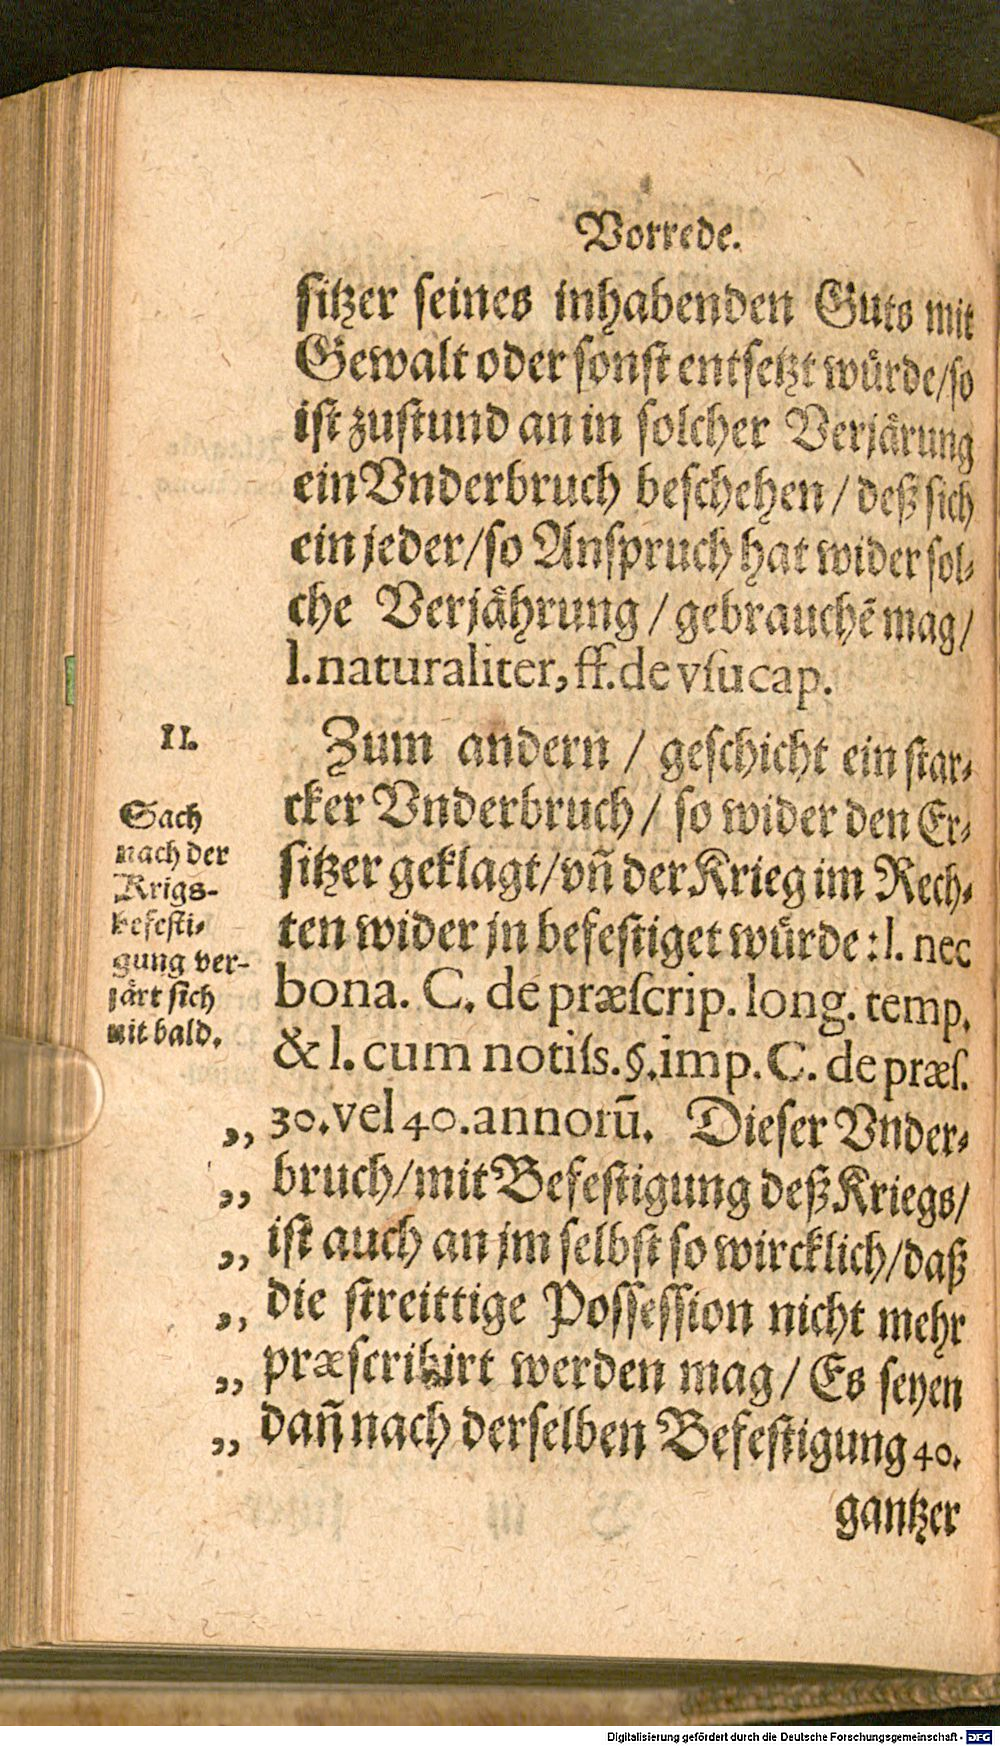 Vorrede.
ſitzer ſeines inhabenden Guts mit
Gewalt oder ſonſt entſetzt wuͤrde/ſo
iſt zuſtund an in ſolcher Verjaͤrung
ein Vnderbruch beſchehen / deß ſich
ein jeder/ſo Anſpruch hat wider ſol⸗
che Verjaͤhrung / gebrauchẽ mag/
l. naturaliter, ff. de vſucap.
II.
Zum andern / geſchicht ein ſtar⸗
cker Vnderbruch / ſo wider den Er⸗
ſitzer geklagt/vñ der Krieg im Rech⸗
ten wider jn befeſtiget wuͤrde: l. nec
bona. C. de præſcrip. long. temp.
& l. cum notiſs. §. imp. C. de præſ.
„ 30. vel 40. annorũ. Dieſer Vnder⸗
„ bruch/mit Befeſtigung deß Kriegs/
„ iſt auch an jm ſelbſt ſo wircklich/daß
„ die ſtreittige Poſſeſſion nicht mehr
„ præſcribirt werden mag/ Es ſeyen
„ dañ nach derſelben Befeſtigung 40.
gantzer
Sach
nach der
Krigs-
befeſti⸗
gung ver-
jaͤrt ſich
nit bald.
Digitalisierung gefördert durch die Deutsche Forschungsgemeinschaft - DFG